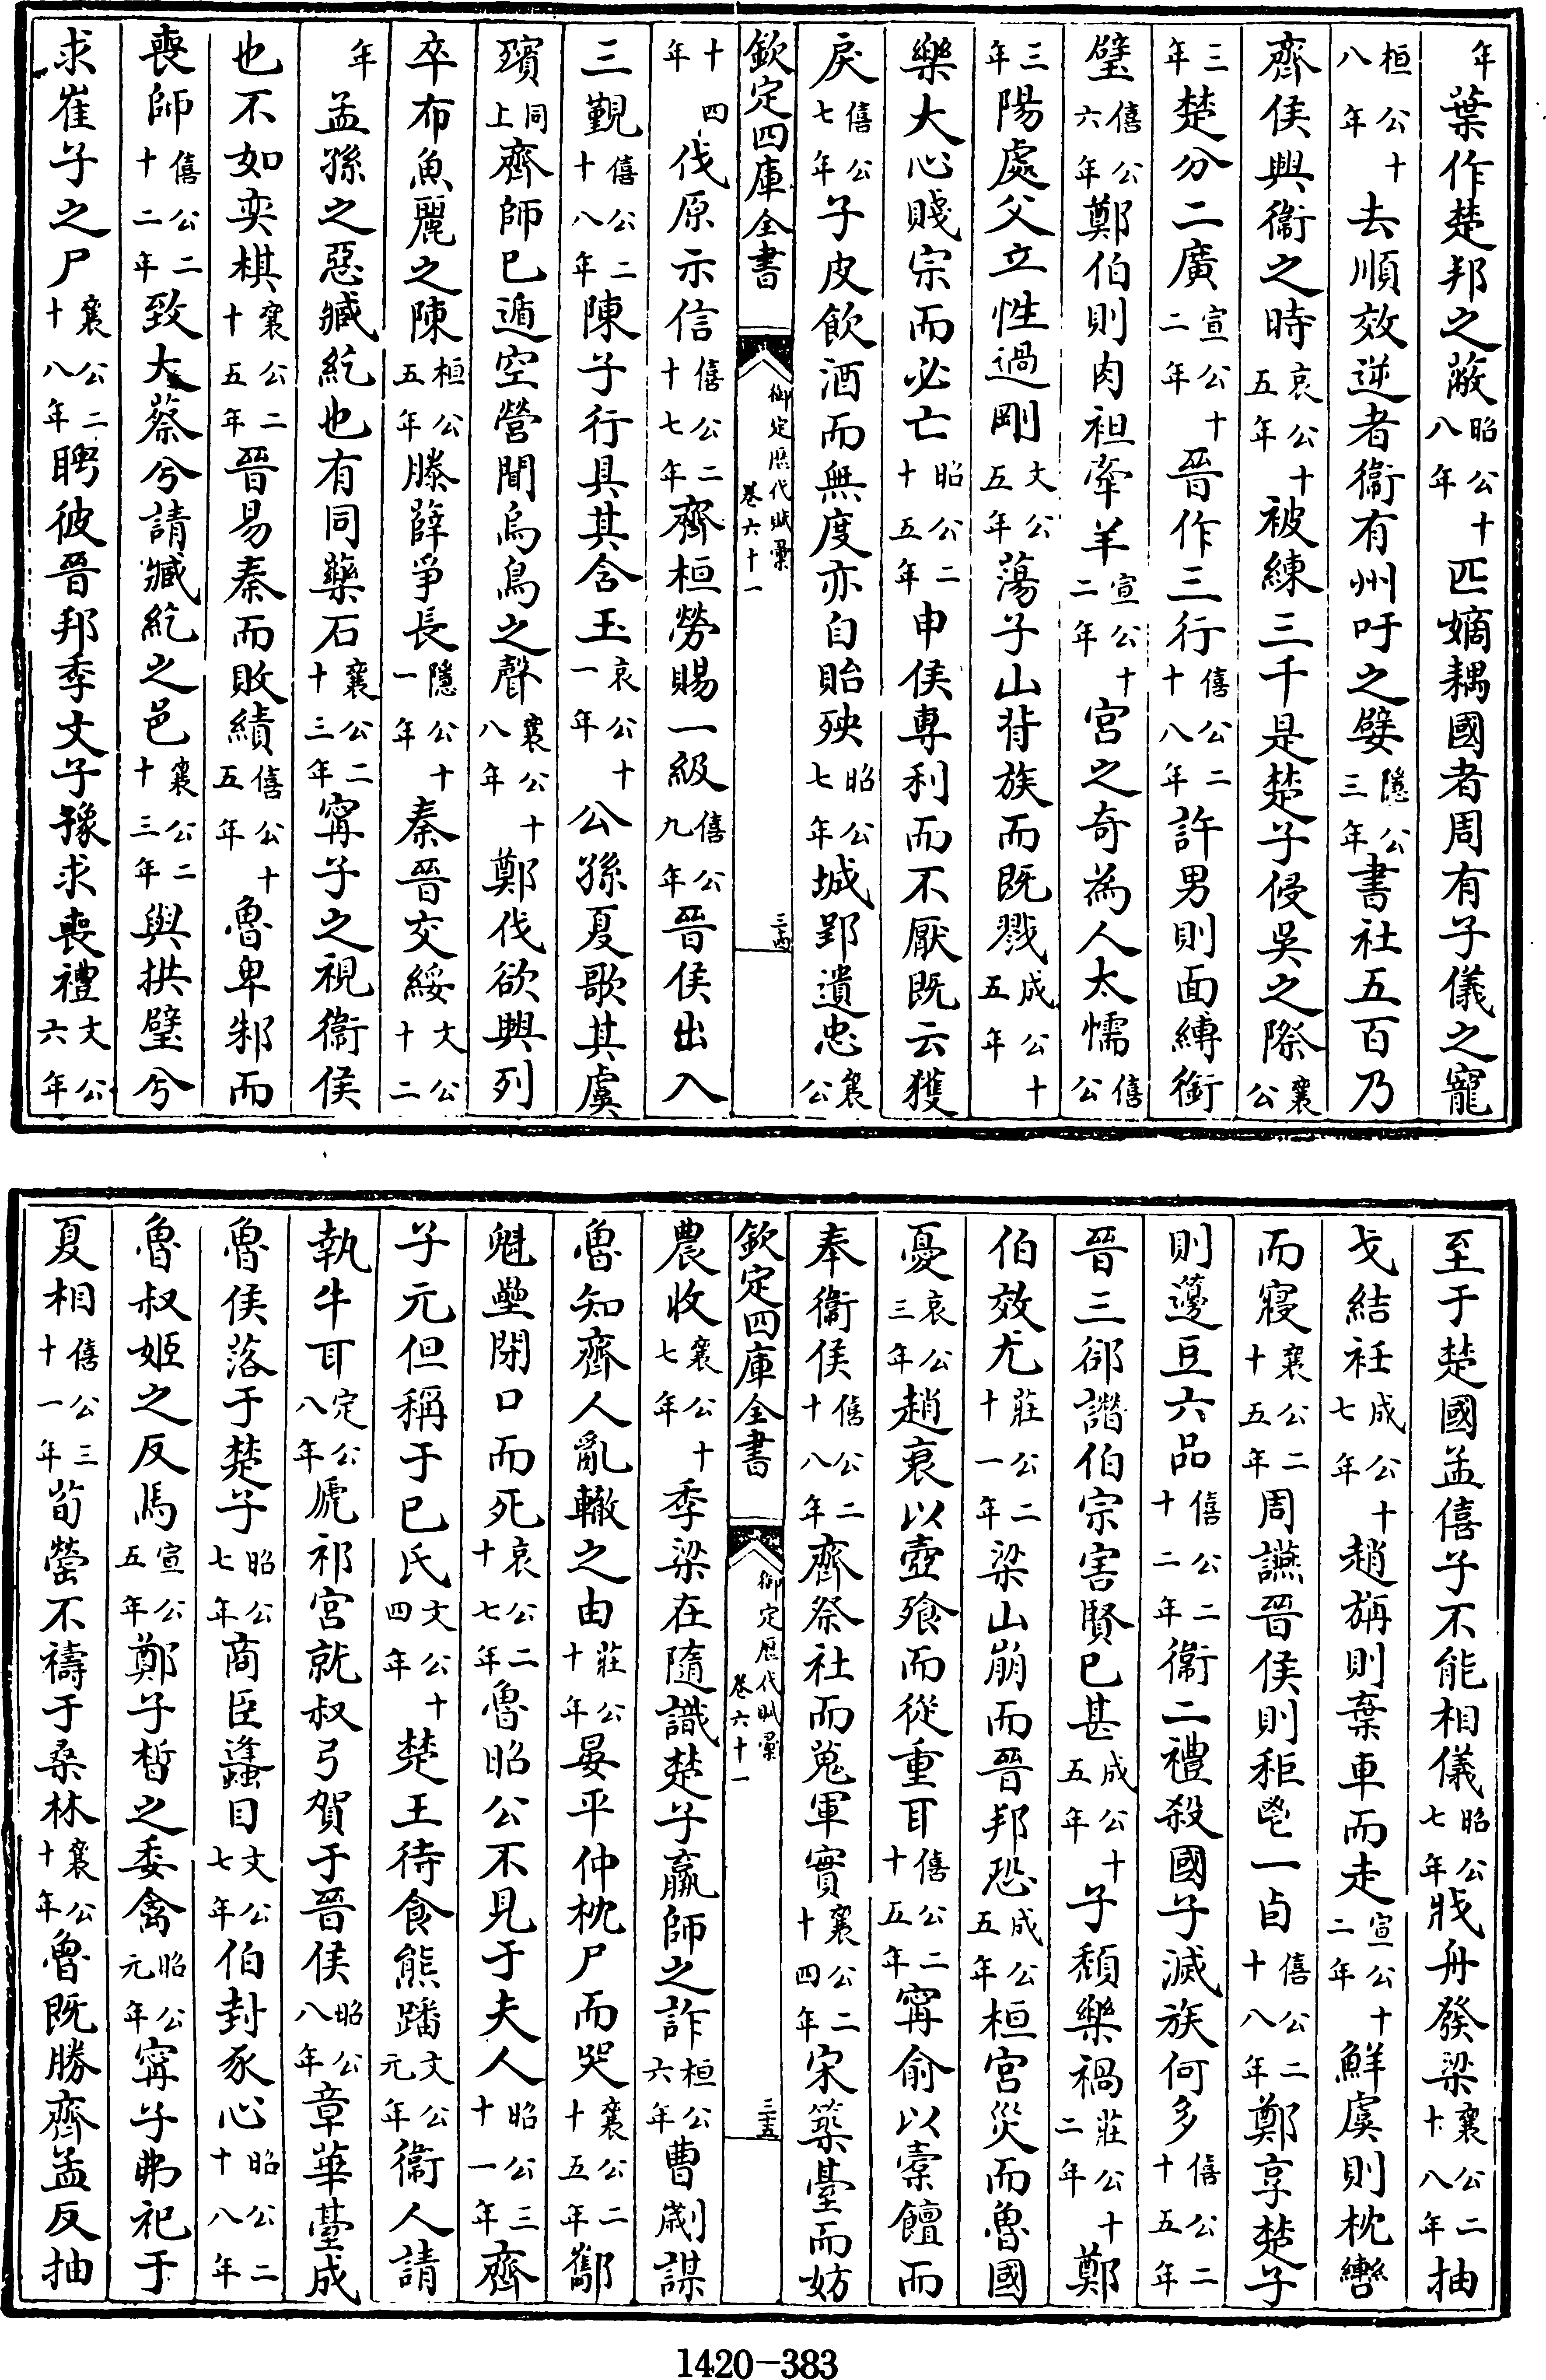 年葉作楚邦之蔽昭公十八年匹嫡耦國者周有子儀之寵
桓公十八年去順效逆者衞有州吁之嬖隱公三年書社五百乃
齊侯與衞之時哀公十五年被練三千是楚子侵吳之際襄公
三年楚分二廣宣公十二年晉作三行僖公二十八年許男則面縛銜
璧僖公六年鄭伯則肉袒牽羊宣公十二年宮之奇為人太懦僖公
三年陽處父立性過剛文公五年蕩子山背族而既戮成公十五年
樂大心賤宗而必亡昭公二十五年申侯專利而不厭既云獲
戾僖公七年子皮飲酒而無度亦自貽殃昭公七年城郢遺忠襄公
欽定四庫全書 御定歷代賦彙 卷六十一 三十四
十四年伐原示信僖公二十七年齊桓勞賜一級僖公九年晉侯出入
三覲僖公二十八年陳子行具其含玉哀公十一年公孫夏歌其虞
殯同上齊師已遁空營聞烏鳥之聲襄公十八年鄭伐欲興列
卒布魚麗之陳桓公五年滕薛爭長隱公十一年秦晉交綏文公十二
年孟孫之惡臧紇也有同藥石襄公二十三年甯子之視衞侯
也不如奕棋襄公二十五年晉易秦而敗績僖公十五年魯卑邾而
喪師僖公二十二年致大蔡兮請臧紇之邑襄公二十三年與拱璧兮
求崔子之尸襄公二十八年聘彼晉邦季文子豫求喪禮文公六年
至于楚國孟僖子不能相儀昭公七年戕舟發梁襄公二十八年抽
戈結衽成公十七年趙旃則棄車而走宣公十二年鮮虞則枕轡
而寢襄公二十五年周讌晉侯則秬鬯一卣僖公二十八年鄭享楚子
則籩豆六品僖公二十二年衞二禮殺國子滅族何多僖公二十五年
晉三郤譖伯宗害賢已甚成公十五年子頽樂禍莊公二十年鄭
伯效尤莊公二十一年梁山崩而晉邦恐成公五年桓宮災而魯國
憂哀公三年趙衰以壺飱而從重耳僖公二十五年甯俞以橐饘而
奉衞侯僖公二十八年齊祭社而蒐軍實襄公二十四年宋築臺而妨
欽定四庫全書 御定歷代賦彙 卷六十一 三十五
農收襄公十七年季梁在隨識楚子羸師之詐桓公六年曹劌謀
魯知齊人亂轍之由莊公十年晏平仲枕尸而哭襄公二十五年酅
魁壘閉口而死哀公二十七年魯昭公不見于夫人昭公三十一年齊
子元但稱于已氏文公十四年楚王待食熊蹯文公元年衞人請
執牛耳定公八年虒祁宮就叔弓賀于晉侯昭公八年章華臺成
魯侯落于楚子昭公七年商臣蠭目文公七年伯封豕心昭公二十八年
魯叔姬之反馬宣公五年鄭子晳之委禽昭公元年甯子弗祀于
夏相僖公三十一年荀罃不禱于桑林襄公十年魯既勝齊孟反抽
1420-383